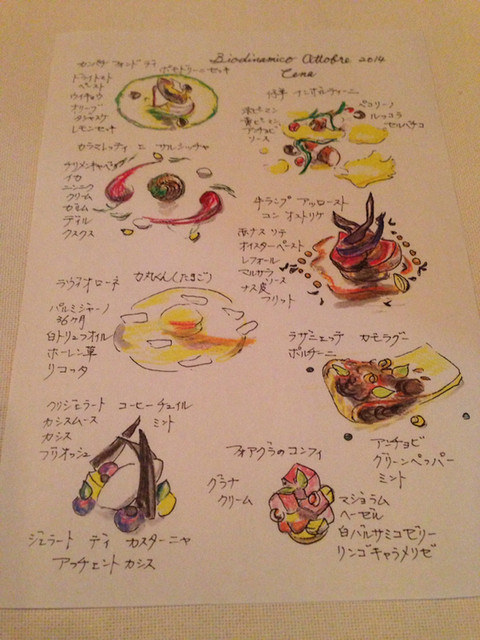 Biodinamico Ottobre 2014
Cena
カンパチ フォンド ディ
ポモドーロセッキ
ドライトマト
ペースト
ウイキョウ
オリーブ
タジャスケ
レモンセッキ
仔羊 インボルティーニ
赤ピーマン
黄ピーマン
アンチョビ
ソース
ペコリーノ
ルッコラ
セルバチコ
カラマレッティ エ サルシッチャ
チリメンキャベツ
イカ
ニンニク
クリーム
ディル
クスクス
牛ランプ アッロースト
コン オストリケ
赤ナス リチ
オイスターペースト
レフォール
マルサラ
ソース
ナス皮
フリット
ラヴィオローネ
(たまご)
パルミジャーノ
36ヶ月
白トリュフオイル
ホーレン草
リコッタ
ラザニェッテ カモラグー
ポルチーニ
アンチョビ
グリーンペッパー
ミント
クリジェラート コーヒーチュイル
カシスムース ミント
カシス
ブリオッシュ
ジェラート ディ カスターニャ
アッチェント カシス
フォアグラのコンフィ
グラナ
クリーム
マジョラム
ヘーゼル
白バルサミコゼリー
リンゴキャラメリゼ